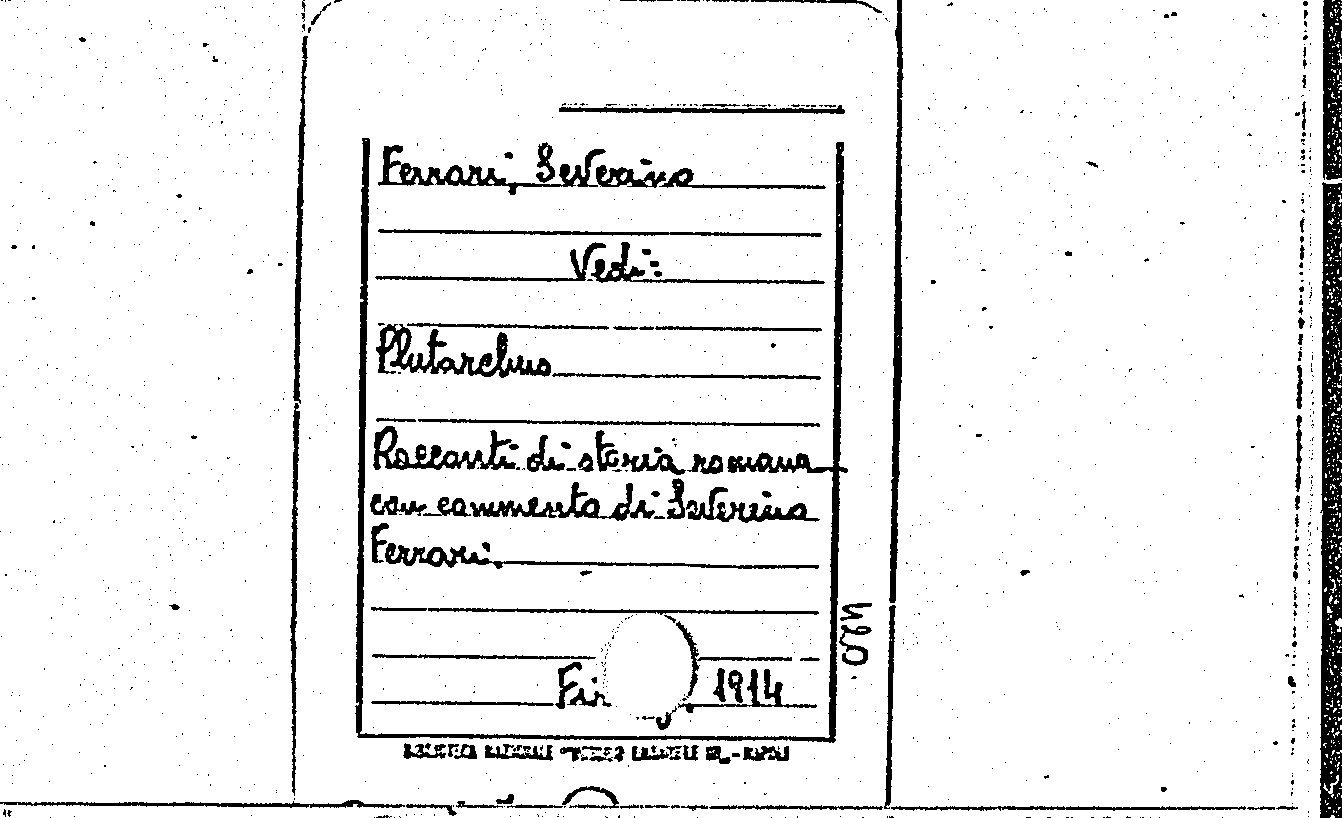 Ferrari, Severino
Vedi:
Plutarchus
Racconti di storia romana
con commento di Severino
Ferrari.
1914
420
BIBLIOTECA NAZIONALE "VITTORIO EMANUELE III„ - NAPOLI